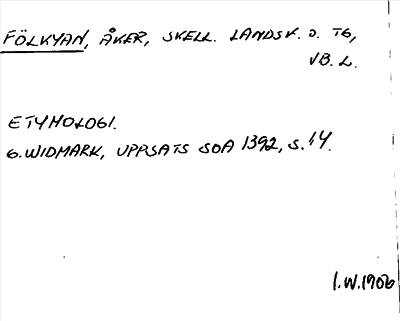 FÖLKYAN, ÅKER, SKELL. LANDSK. O. TG,
VB. L.
ETYMOLOGI.
G. WIDMARK, UPPSATS SOA 1392, S. 14.
I.W. 1906